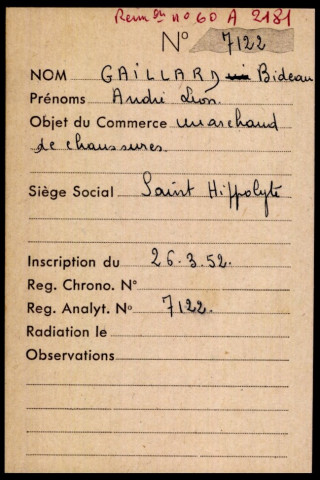 Rem on n° 60 A 2181
N° 7122
NOM GAILLARD Bideau
Prénoms André Léon.
Objet du Commerce marchand
de chaussures.
Siège Social Saint Hippolyte
Inscription du 26.3.52.
Reg. Chrono. N°
Reg. Analyt. No 7122.
Radiation le
Observations